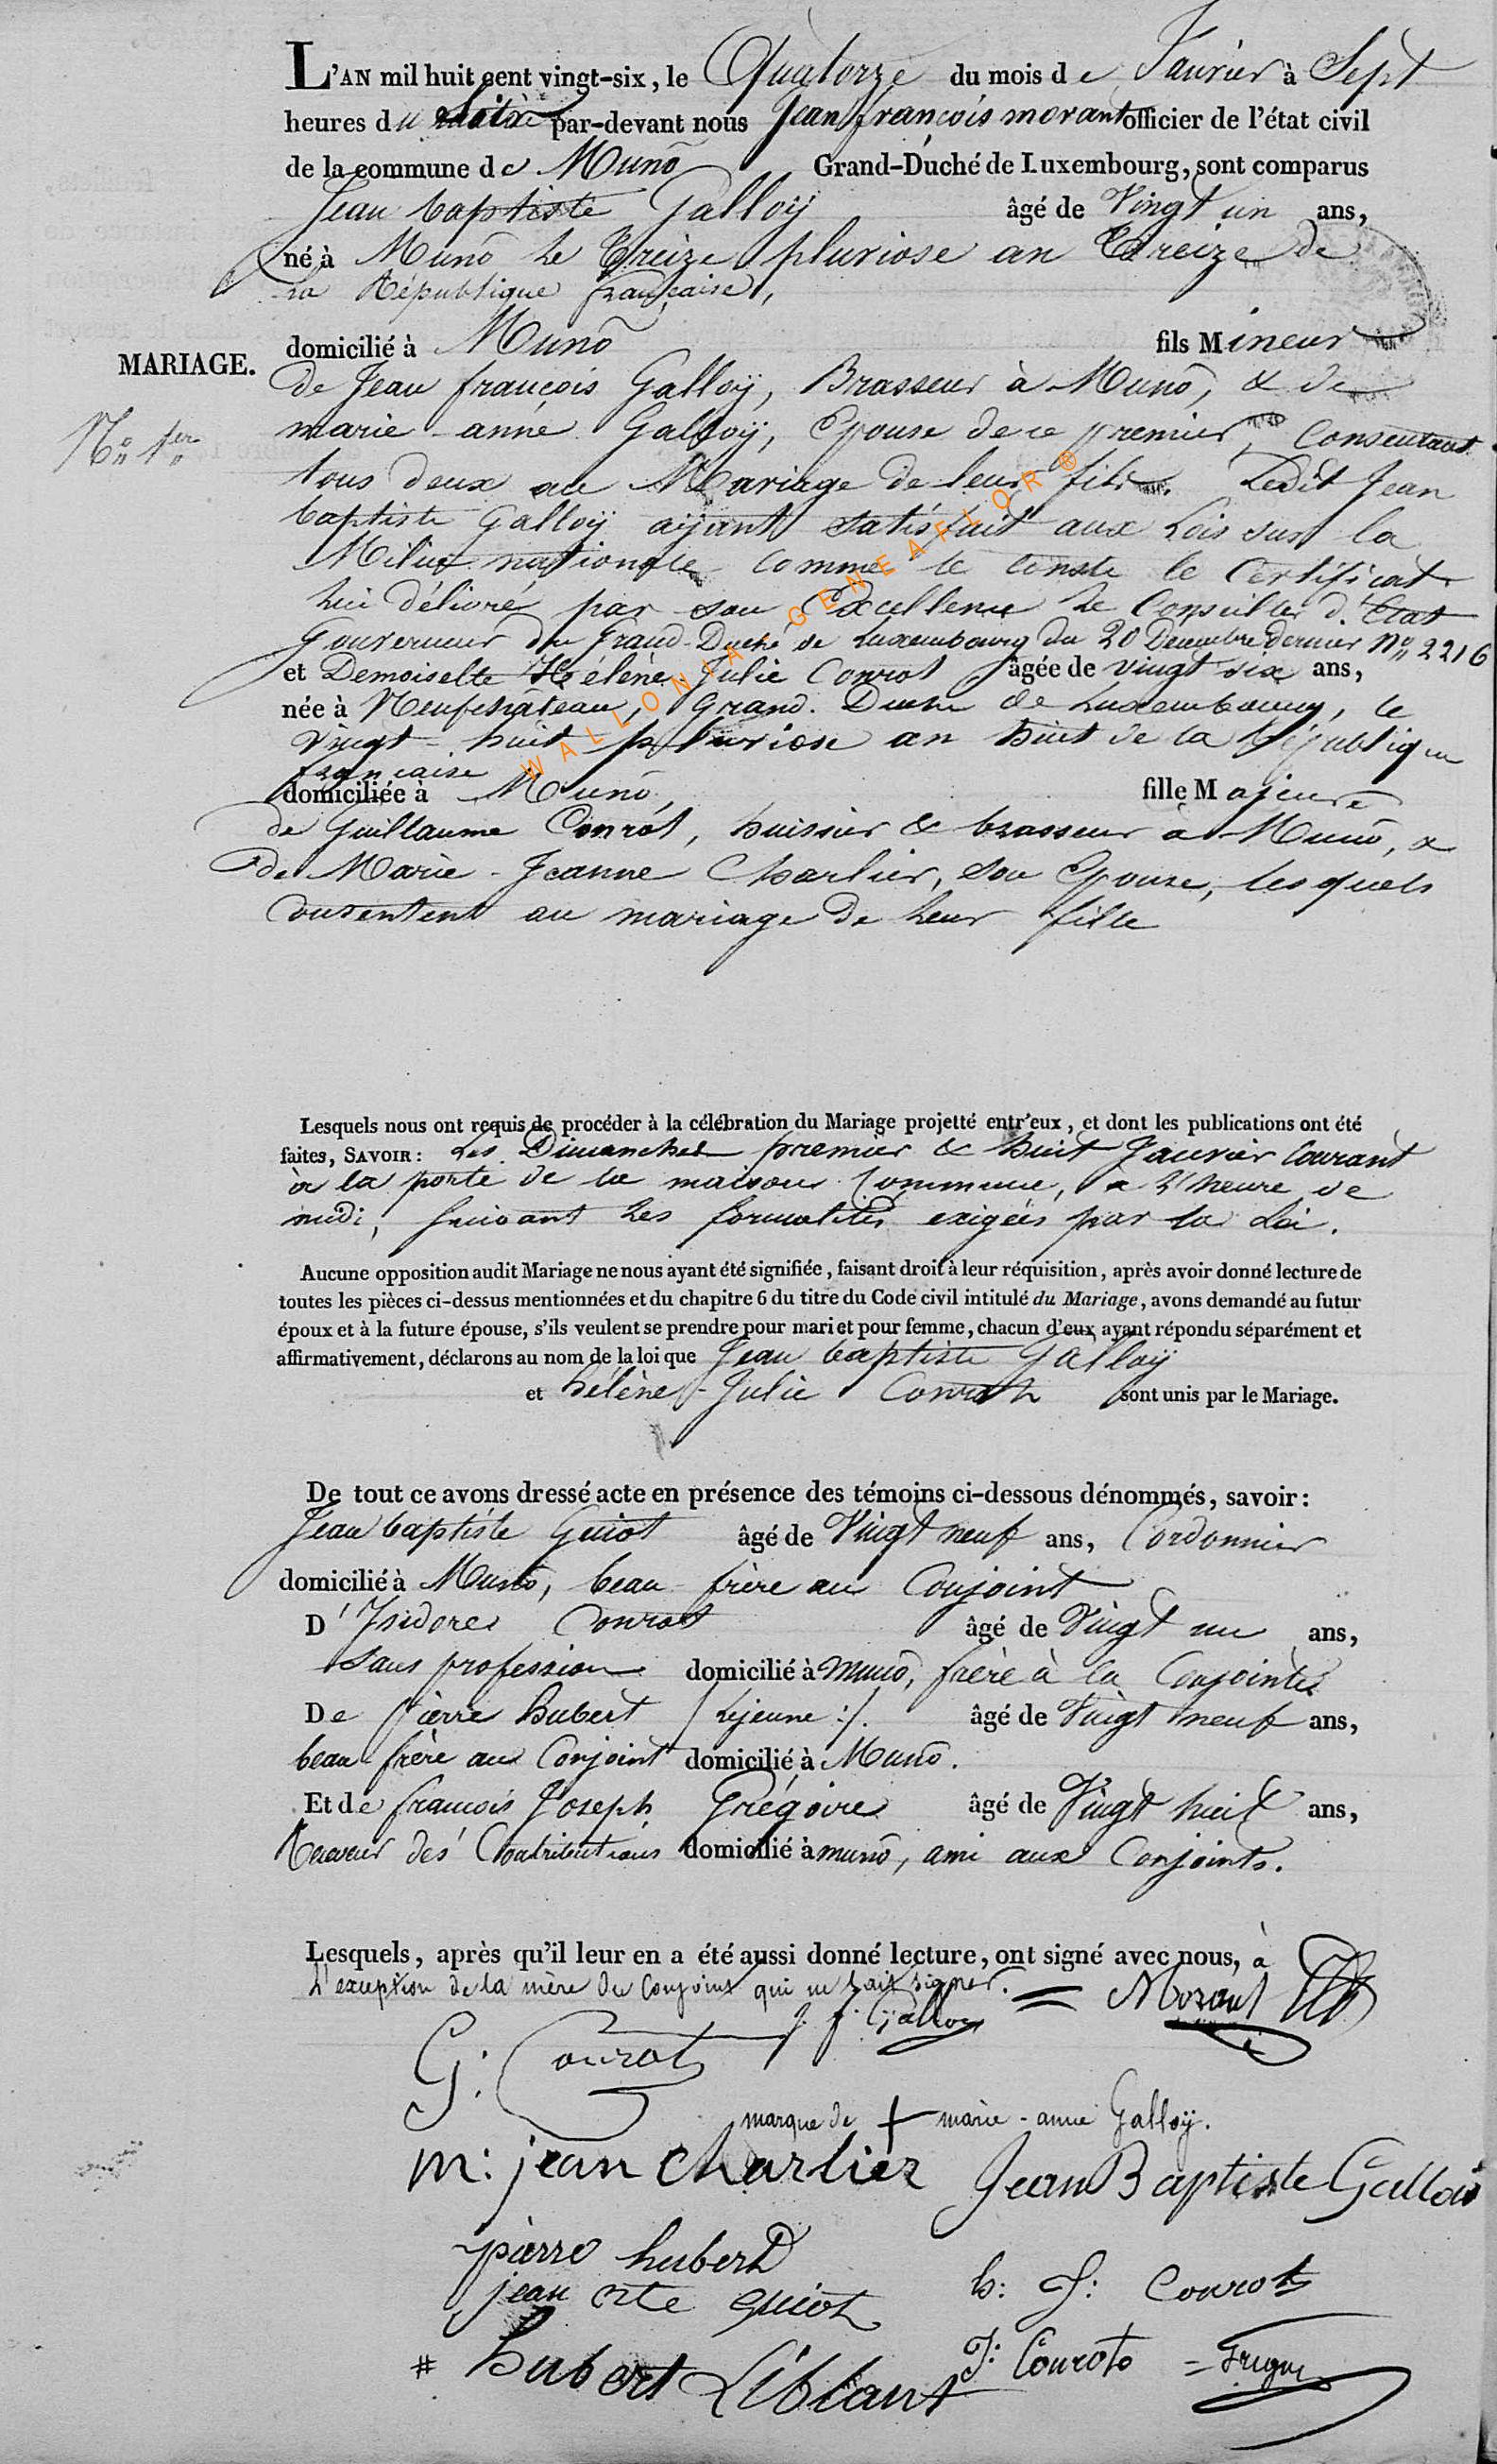 L'AN mil huit cent vingt-six, le Quatorze du mois de Janvier à Sept
heures du par-devant nous Jean françois morant officier de l'état civil
de la commune de Munô Grand-Duché de Luxembourg, sont comparus
Jean baptiste Galloÿ âgé de Vingt un ans,
né à Munô le Treize pluviose an Treize de
La République française,
domicilié à Munô fils Mineur
MARIAGE.
de Jean françois Galloÿ, Brasseur à Munô, & de
N.º 1.er
marie-anne Galloÿ, Epouse de ce premier, Consentant
tous deux au Mariage de leur fils. Ledit Jean
baptiste Galloÿ aÿant satisfait aux Lois sur la
Milice nationale comme le conste le Certificat
Lui délivré par son Excellence le Conseiller d'Etat
Gouverneur du Grand-Duché de Luxembourg du 20 Décembre dernier Nº 2216
et Demoiselle Hélène Julie Conrot âgée de vingt six ans,
née à Neufchâteau, Grand-Duché de Luxembourg, le
Vingt-huit pluviose an huit de la République
française
domiciliée à Munô, fille Majeure
de Guillaume Conrot, huissier & brasseur à Munô, &
de Marie-Jeanne Charlier, son Epouse, lesquels
consentent au mariage de leur fille
WALLONIA - GENEAFLOR ®
Lesquels nous ont requis de procéder à la célébration du Mariage projetté entr'eux, et dont les publications ont été
faites, SAVOIR : Les Dimanches premier & huit Janvier Courant
à la porte de la maison Commune, à l'heure de
midi, suivant les formalités exigées par la Loi.
Aucune opposition audit Mariage ne nous ayant été signifiée, faisant droit à leur réquisition, après avoir donné lecture de
toutes les pièces ci-dessus mentionnées et du chapitre 6 du titre du Code civil intitulé du Mariage, avons demandé au futur
époux et à la future épouse, s'ils veulent se prendre pour mari et pour femme, chacun d'eux ayant répondu séparément et
affirmativement, déclarons au nom de la loi que Jean baptiste Galloÿ
et hélène-Julie Conrot sont unis par le Mariage.
De tout ce avons dressé acte en présence des témoins ci-dessous dénommés, savoir :
Jean baptiste Guiot âgé de Vingt neuf ans, Cordonnier
domicilié à Munô, beau-frère au Conjoint
D'Isidore Conrot âgé de Vingt un ans,
Sans profession domicilié à munô, frère à la Conjointe
De pierre hubert /Lejeune :/. âgé de Vingt neuf ans,
beau-frère au Conjoint domicilié à Munô.
Et de françois Joseph Grégoire âgé de Vingt huit ans,
Receveur des Contributions domicilié à munô, ami aux Conjoints.
Lesquels, après qu'il leur en a été aussi donné lecture, ont signé avec nous, à
L'exception de la mère du Conjoint qui ne sait signer. = Morant
J. f. Galloy
G: Conrot
marque de + marie-anne Galloÿ.
m: jean charlier Jean Baptiste Gallois
pierre hubert
h: J: Conrot
jean bte guiot
J: Conrot =
# hubert Liblant